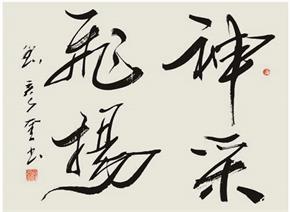 神采
飛揚